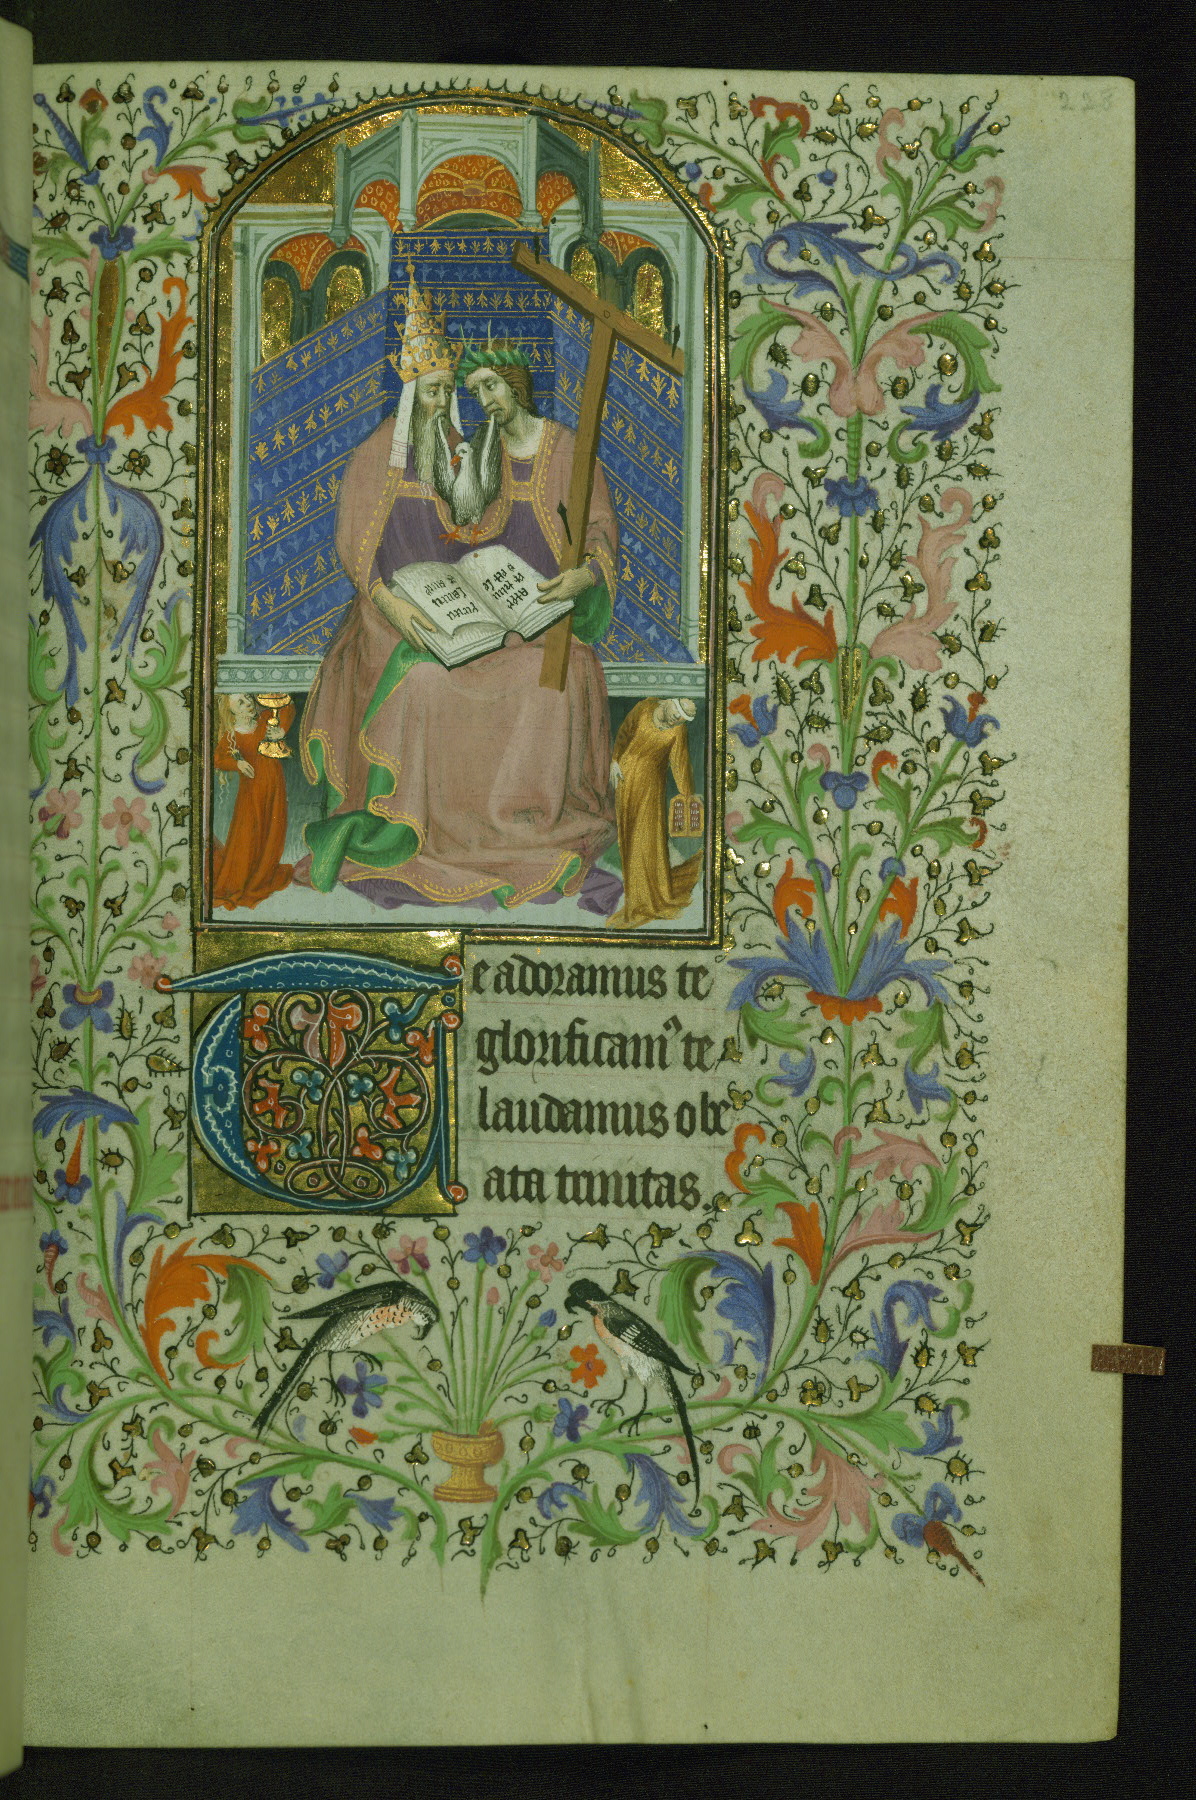 228
Te adoramus te
glorificam⁹ te
laudamus o be
ata trinitas.